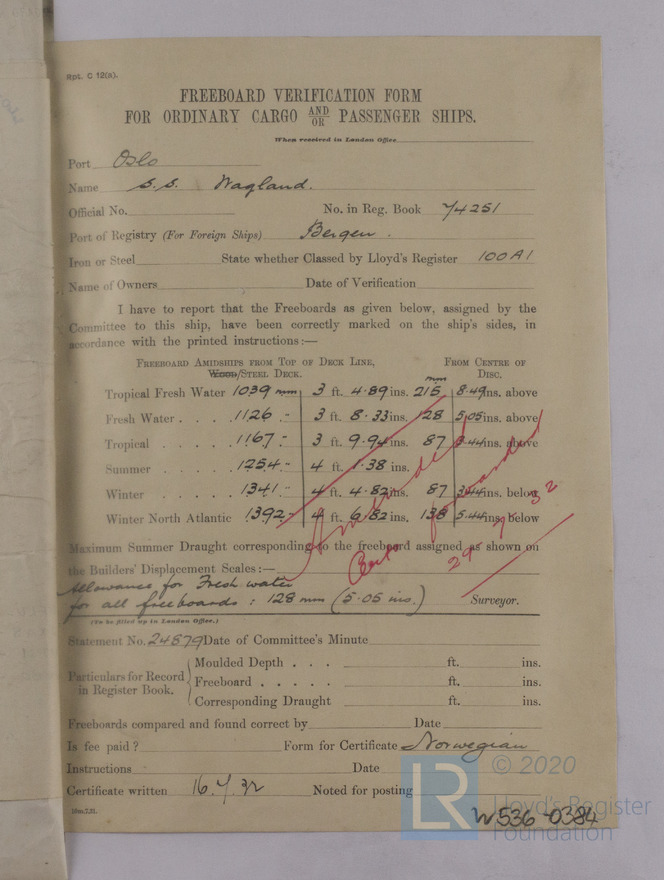 Rpt. C 12(a).
FREEBOARD VERIFICATION FORM
FOR ORDINARY CARGO AND/OR PASSENGER SHIPS.
When received in London Office
Port Oslo
Name S.S. Vagland.
Official No. No. in Reg. Book 74251
Port of Registry (For Foreign Ships) Bergen.
Iron or Steel State whether Classed by Lloyd's Register 100A1
Name of Owners Date of Verification
I have to report that the Freeboards as given below, assigned by the
Committee to this ship, have been correctly marked on the ship's sides, in
accordance with the printed instructions:—
FREEBOARD AMIDSHIPS FROM TOP OF DECK LINE, FROM CENTRE OF
WOOD/STEEL DECK. DISC.
mm
Tropical Fresh Water 1039 mm 3 ft. 4.89 ins. 215 8.49 ins. above
Fresh Water . . . 1126 .- 3 ft. 8.33 ins. 128 5.05 ins. above
Tropical . . . . 1167 .- 3 ft. 9.94 ins. 87 3.44 ins. above
Summer . . . . 1254 .- 4 ft. 1.38 ins.
Winter . . . . . 1341 .- 4 ft. 4.82 ins. 87 3.44 ins. below
Winter North Atlantic 1392 - 4 ft. 6.82 ins. 138 5.44 ins. below
Amended
forwarded
29 7 32
Maximum Summer Draught corresponding to the freeboard assigned as shown on
the Builders' Displacement Scales:—
Allowance for Fresh water
for all freeboards: 128 mm (5.05 ins.) Surveyor.
(To be filled up in London Office.)
Statement No. 24879 Date of Committee's Minute
Particulars for Record in Register Book.
Moulded Depth . . . ft. ins.
Freeboard . . . . . ft. ins.
Corresponding Draught ft. ins.
Freeboards compared and found correct by Date
Is fee paid? Form for Certificate Norwegian
Instructions Date
Certificate written 16.7.32 Noted for posting
10m.7.31.
LR © 2020
Lloyd's Register
Foundation
W536-0384